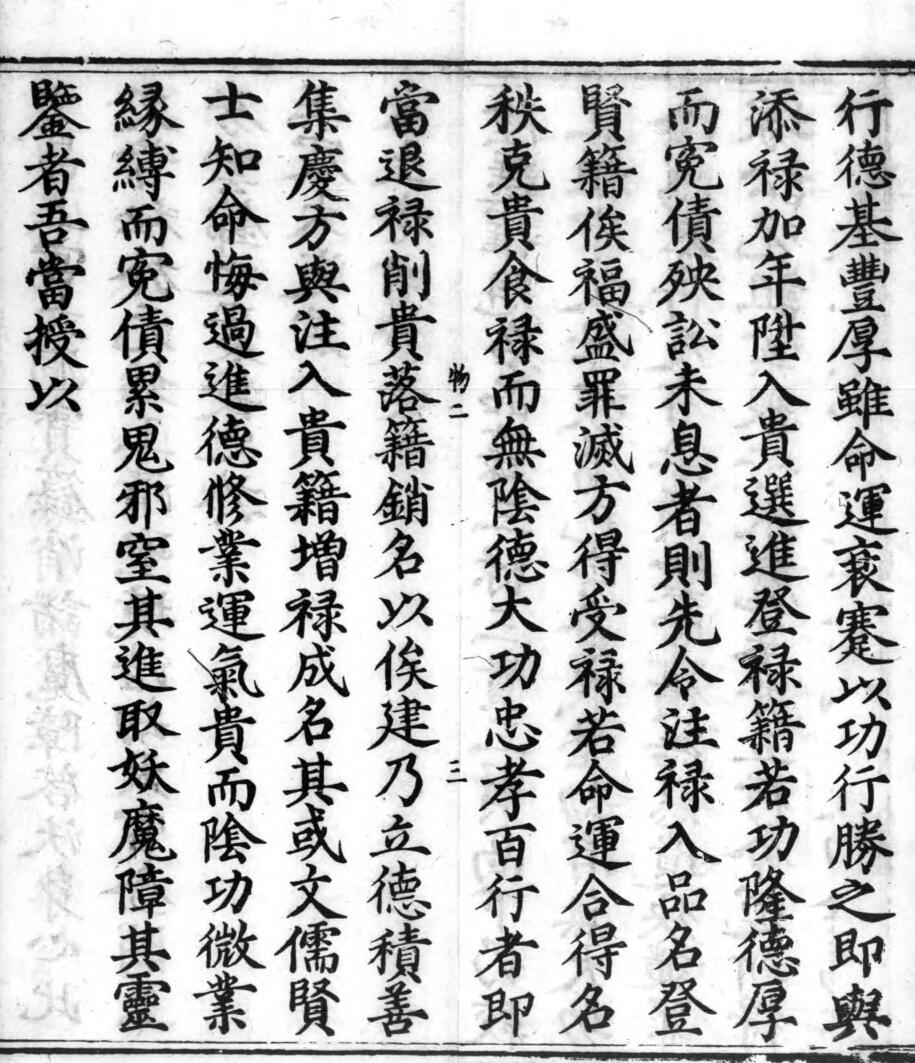 行德基豐厚雖命運衰蹇以功行勝之即與
添禄加年陞入貴選進登禄籍若功隆德厚
而寃債殃訟未息者則先令注禄入品名登
賢籍俟福盛罪滅方得受禄若命運合得名
秩克貴食禄而無陰德大功忠孝百行者即
物二
三
當退禄削貴落籍銷名以俟建乃立德積善
集慶方與注入貴籍增禄成名其或文儒賢
士知命悔過進德修業運氣貴而陰功微業
緣縛而寃債累鬼邪窒其進取妖魔障其靈
鑒者吾當授以